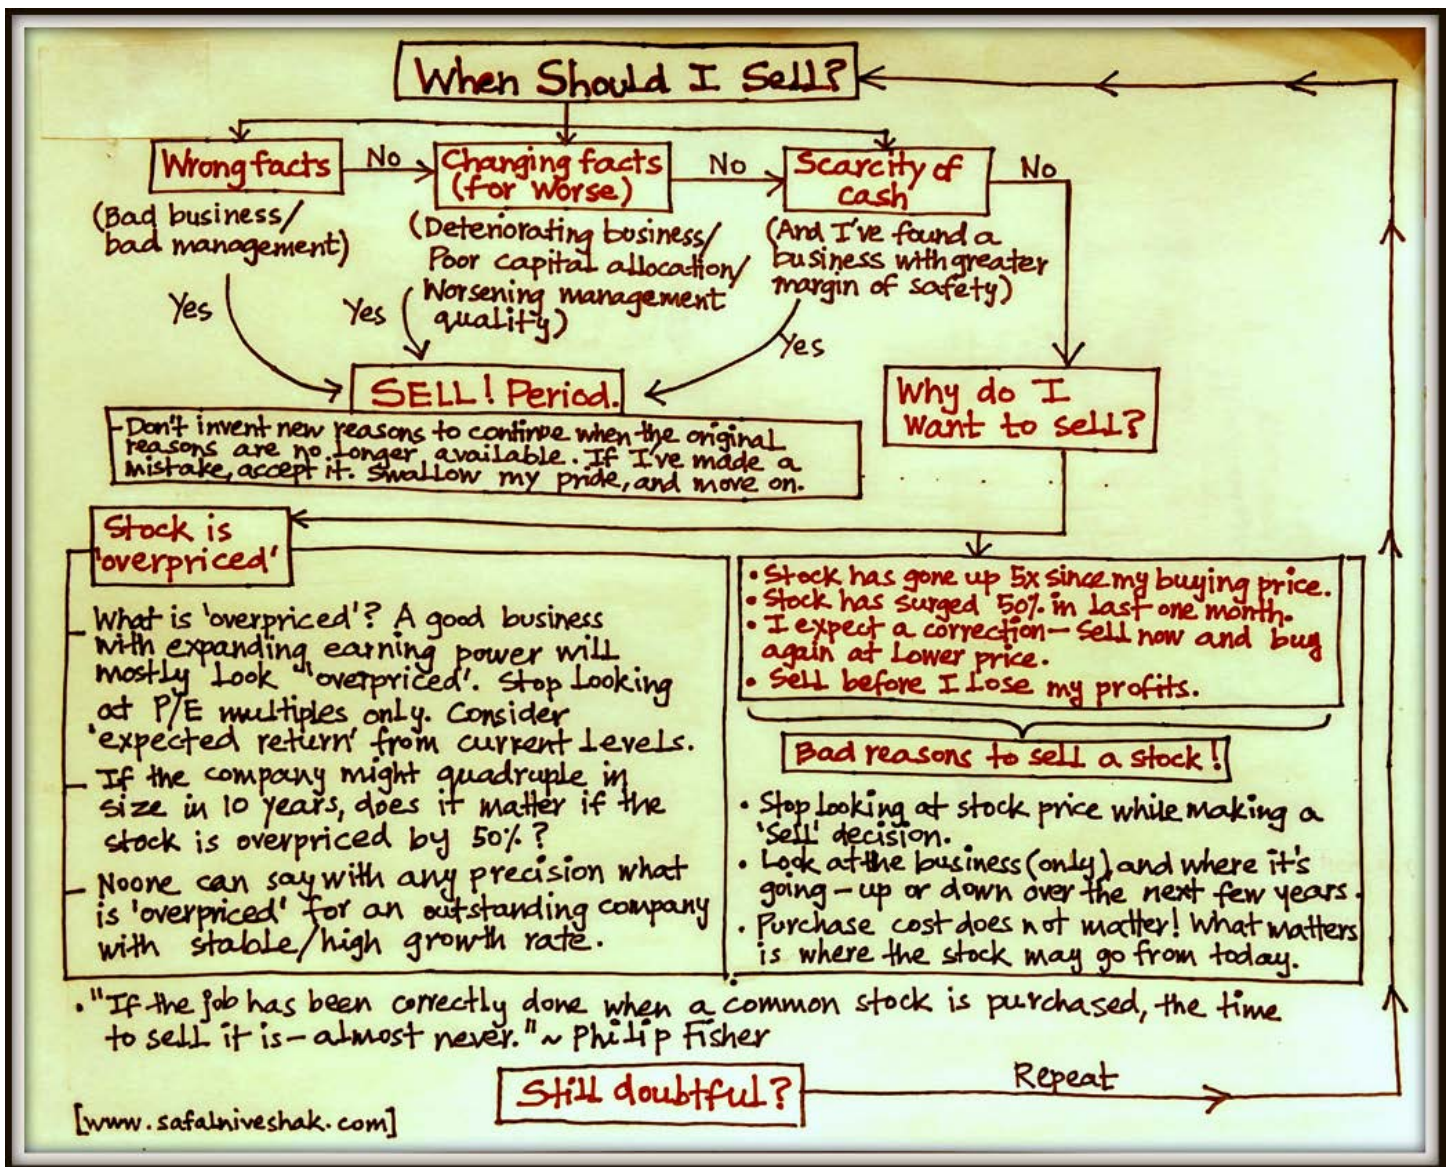 When Should I Sell?
Wrong facts
No
Changing facts
(for Worse)
No
Scarcity of
cash
No
(Bad business/
bad management)
(Deteriorating business/
Poor capital allocation/
Worsening management
quality)
(And I've found a
business with greater
margin of safety)
Yes
Yes
Yes
SELL! Period.
- Don't invent new reasons to continue when the original
reasons are no longer available. If I've made a
mistake, accept it. Swallow my pride, and move on.
Why do I
want to sell?
Stock is
'overpriced'
- What is 'overpriced'? A good business
with expanding earning power will
mostly look "'overpriced'. Stop looking
at P/E multiples only. Consider
'expected return' from current levels.
- If the company might quadruple in
size in 10 years, does it matter if the
stock is overpriced by 50%?
- Noone can say with any precision what
is 'overpriced' for an outstanding company
with stable/high growth rate.
• Stock has gone up 5x since my buying price.
• Stock has surged 50% in last one month.
• I expect a correction - sell now and buy
again at lower price.
• Sell before I lose my profits.
Bad reasons to sell a stock!
• Stop looking at stock price while making a
'sell' decision.
• Look at the business (only) and where it's
going - up or down over the next few years.
• Purchase cost does not matter! What matters
is where the stock may go from today.
• "If the job has been correctly done when a common stock is purchased, the time
to sell it is - almost never." ~ Philip Fisher
Still doubtful?
Repeat
[www.safalniveshak.com]